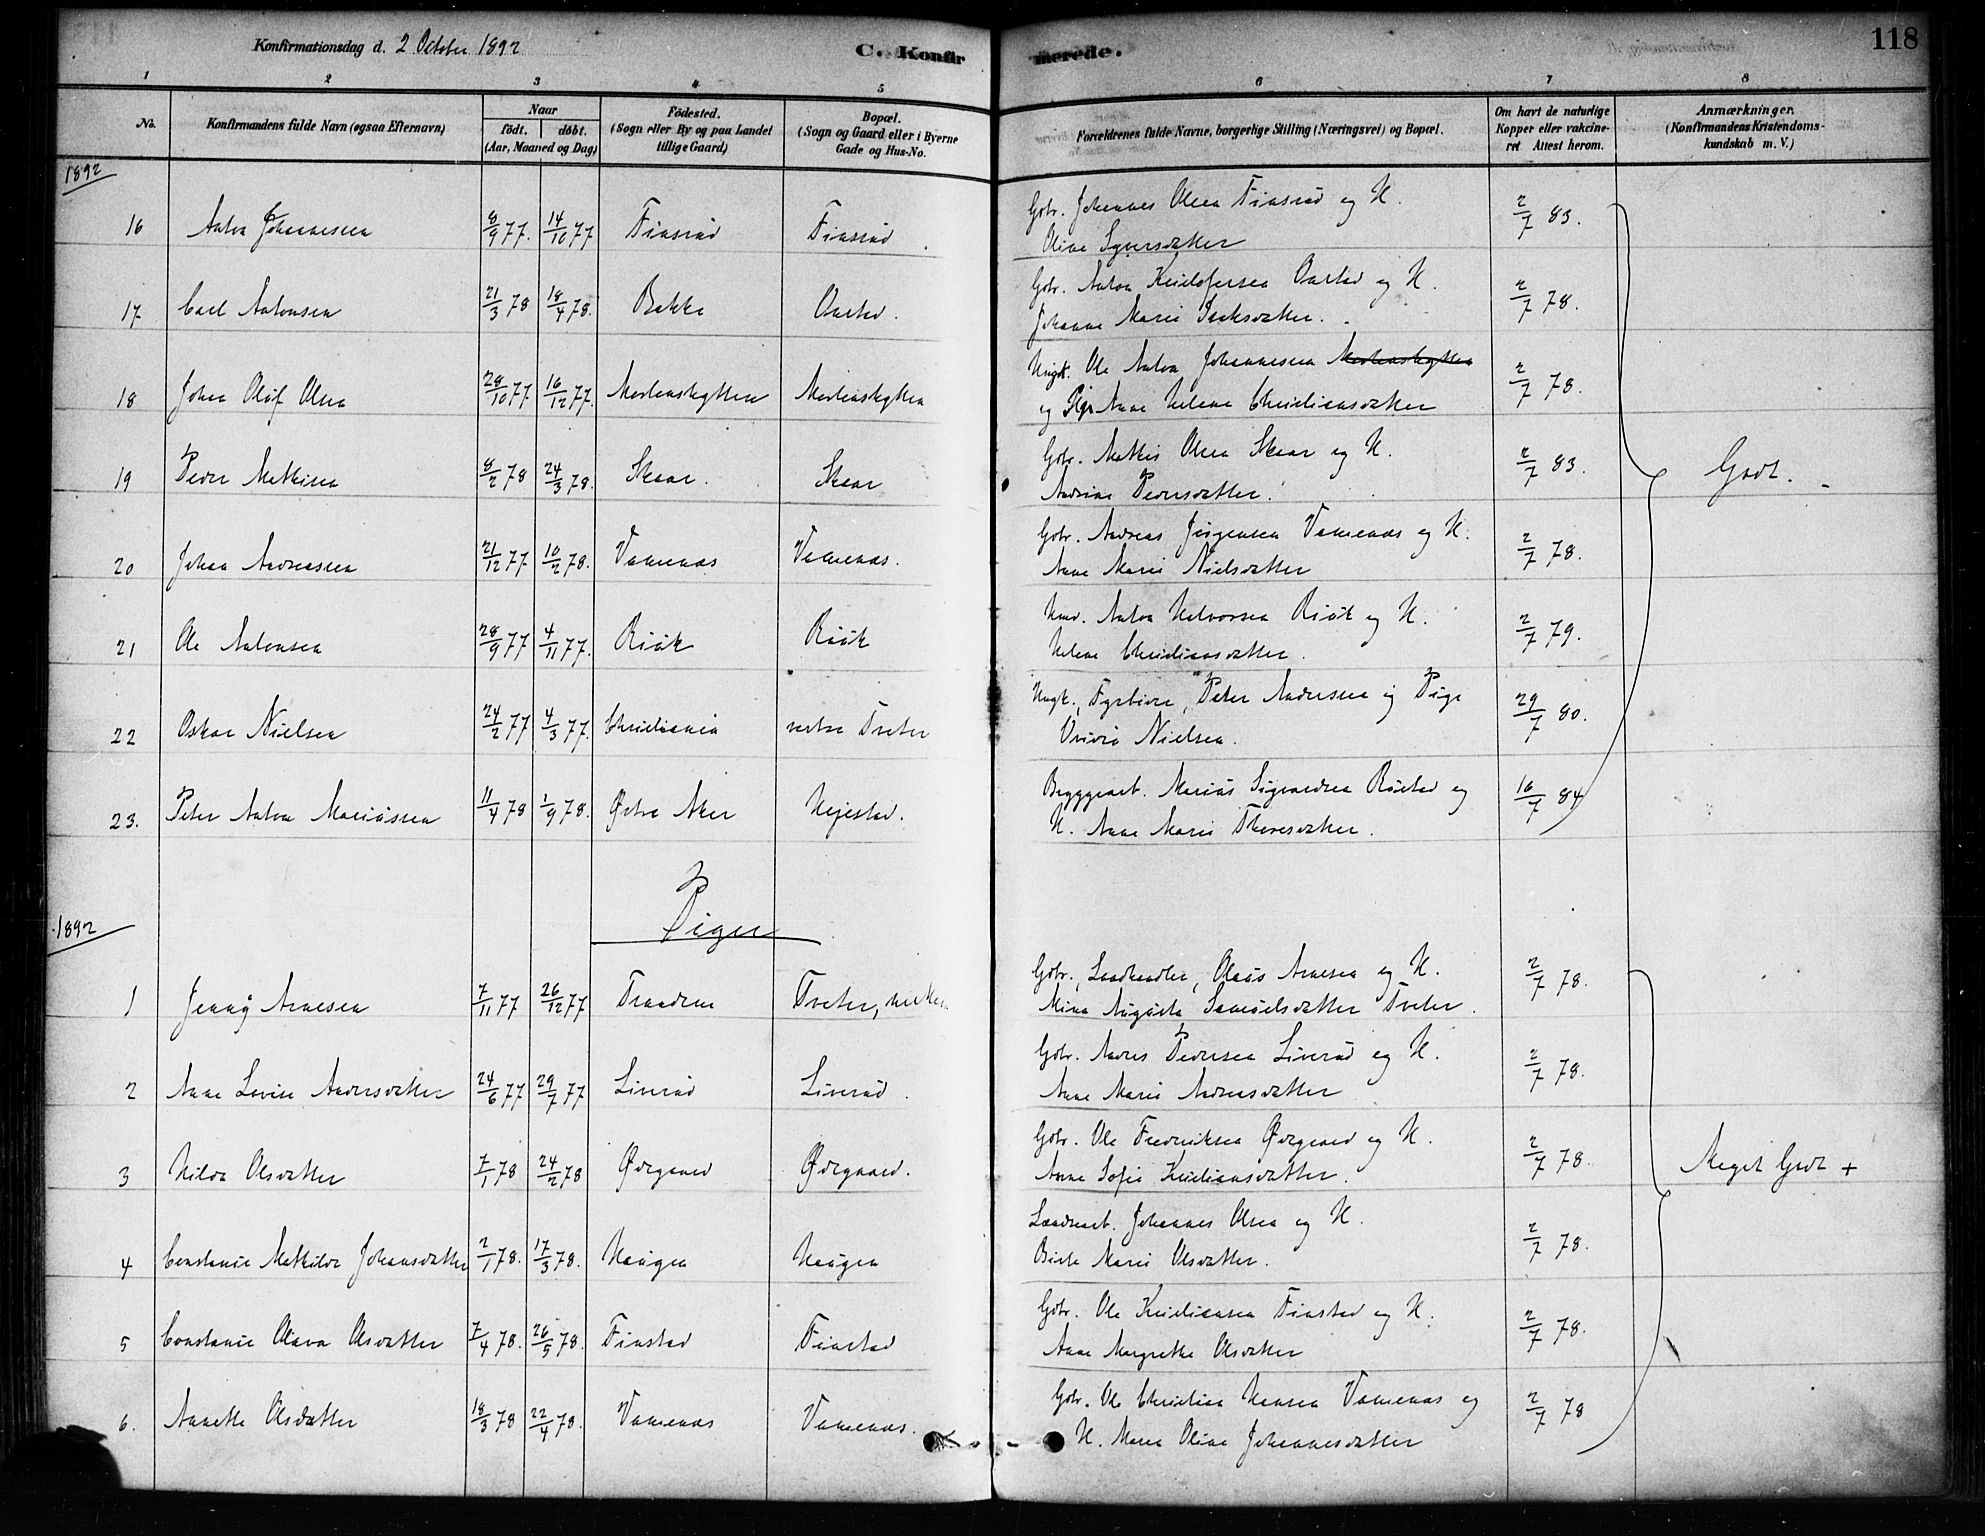 Konfirmationsdag d. 2 October 1892
C. Konfirmerede.
118
1 2 3 4 5 6 7 8
No. | Konfirmandens fulde Navn (ogsaa Efternavn) | Naar født. | døbt. (Aar, Maaned og Dag) | Fødested. (Sogn eller By og paa Landet tillige Gaard) | Bopæl. (Sogn og Gaard eller i Byerne Gade og Hus-No. | Forældrenes fulde Navne, borgerlige Stilling (Næringsvei) og Bopæl. | Om havt de naturlige Kopper eller vakcineret Attest herom. | Anmærkninger. (Konfirmandens Kristendomskundskab m. V.)
1892
16 Anton Johannesen 8/9 77. 14/10 77 Finsrud Finsrud. Gbr. Johannes Olsen Finsrud og H. 2/7 83.
Oline Syversdatter
17 Carl Antonsen 21/3 78 18/4 78. Bakke Oustad. Gbr. Anton Kristofersen Oustad og H. 2/7 78.
Johanne Marie Isaksdatter.
18 John Oluf Olsen 28/10 77 16/12 77. Mortenshytten Mortenshytten Ungk. Ole Anton Johannesen Mortenshytten 2/7 78.
og Pige Anne Helene Christiansdatter
19 Peder Mathisen 8/2 78 24/3 78. Skaar. Skaar Gbr. Mathis Olsen Skaar og H. 2/7 83. Godt.
Andrine Pedersdatter.
20 Johan Andreassen 21/12 77 10/2 78. Vammenæs Vammenæs. Gbr. Andreas Jørgensen Vammenæs og H. 2/7 78.
Anne Marie Nielsdatter
21 Ole Antonsen 28/9 77 4/11 77. Riiök Riiök Hmd. Anton Halvorsen Riiök og H. 2/7 79.
Helene Christiansdatter.
22 Oskar Nielsen 24/2 77 4/3 77. Christiania nedre Tveter Ungk., Fyrbøder, Peter Andersen og Pige 29/7 80.
Nielsen.
23. Peter Anton Mariussen 11/4 78 1/9 78. Østre Aker Hejestad. Byggearb. Marius Sigvardsen Rustad og 16/7 84
H. Anne Marie Thoresdatter.
Piger
1892
1 Jenny Arnesen 7/11 77 26/12 77 Trandem Tveter, Gbr., Landhandler, Olaus Arnesen og H. 2/7 78.
Mina Augusta Samuelsdatter Tveter.
2 Anne Lovise Andersdatter 24/6 77 29/7 77 Liverud Liverud. Gbr. Anders Pedersen Liverud og H. 2/7 78.
Anne Marie Andreasdatter
3 Hilda Olsdatter 7/1 78 24/2 78 Ødegaard Ødegaard. Gbr. Ole Fredriksen Ødegaard og H. 2/7 78. Meget Godt +
Anne Sofie Kristiansdatter.
4 Constanse Mathilde Johansdatter 2/1 78. 17/3 78. Haugen Haugen Landarb. Johannes Olsen og H. 2/7 78.
Berte Marie Olsdatter.
5 Constanse Olava Olsdatter 7/4 78. 26/5 78. Finstad Finstad Gbr. Ole Kristiansen Finstad og H. 2/7 78.
Anne Margrethe Olsdatter
6. Annette Olsdatter 18/3 78 22/4 78. Vammenæs Vammenæs. Gbr. Ole Christian Hansen Vammenæs og 2/7 78
H. Maren Oline Johannesdatter